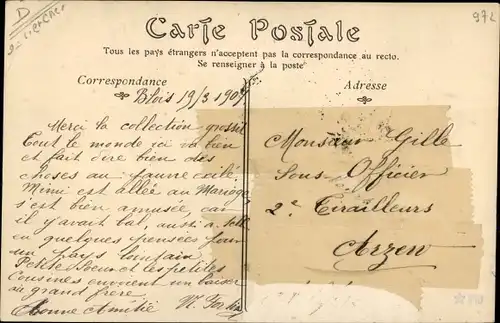 Carte Postale
Tous les pays étrangers n'acceptent pas la correspondance au recto.
Se renseigner à la poste
Correspondance
Adresse
D
972
Blois 19/3 1907
Merci la collection grossit
Tout le monde ici va bien
et fait dire bien des
choses au jaune exilé
Mimi est allée au Mariage
s'est bien amusée, car
il y avait bal, aussi a
en quelques pensées pour
un pays lointain
Petite Soeur et les petites
Cousines envoient un baiser
au grand frère
Bonne Amitié
Monsieur Gille
Sous Officier
2e Tirailleurs
Arzew